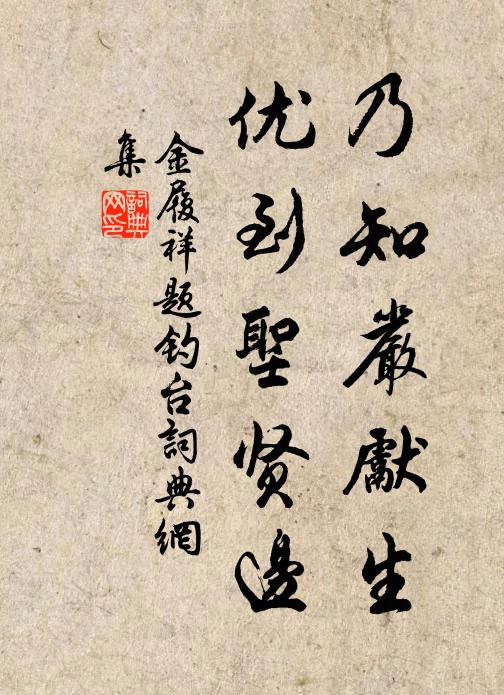 乃知嚴獻生
优到聖贤邊
金履祥题钓台詞典網
集
詞典网印